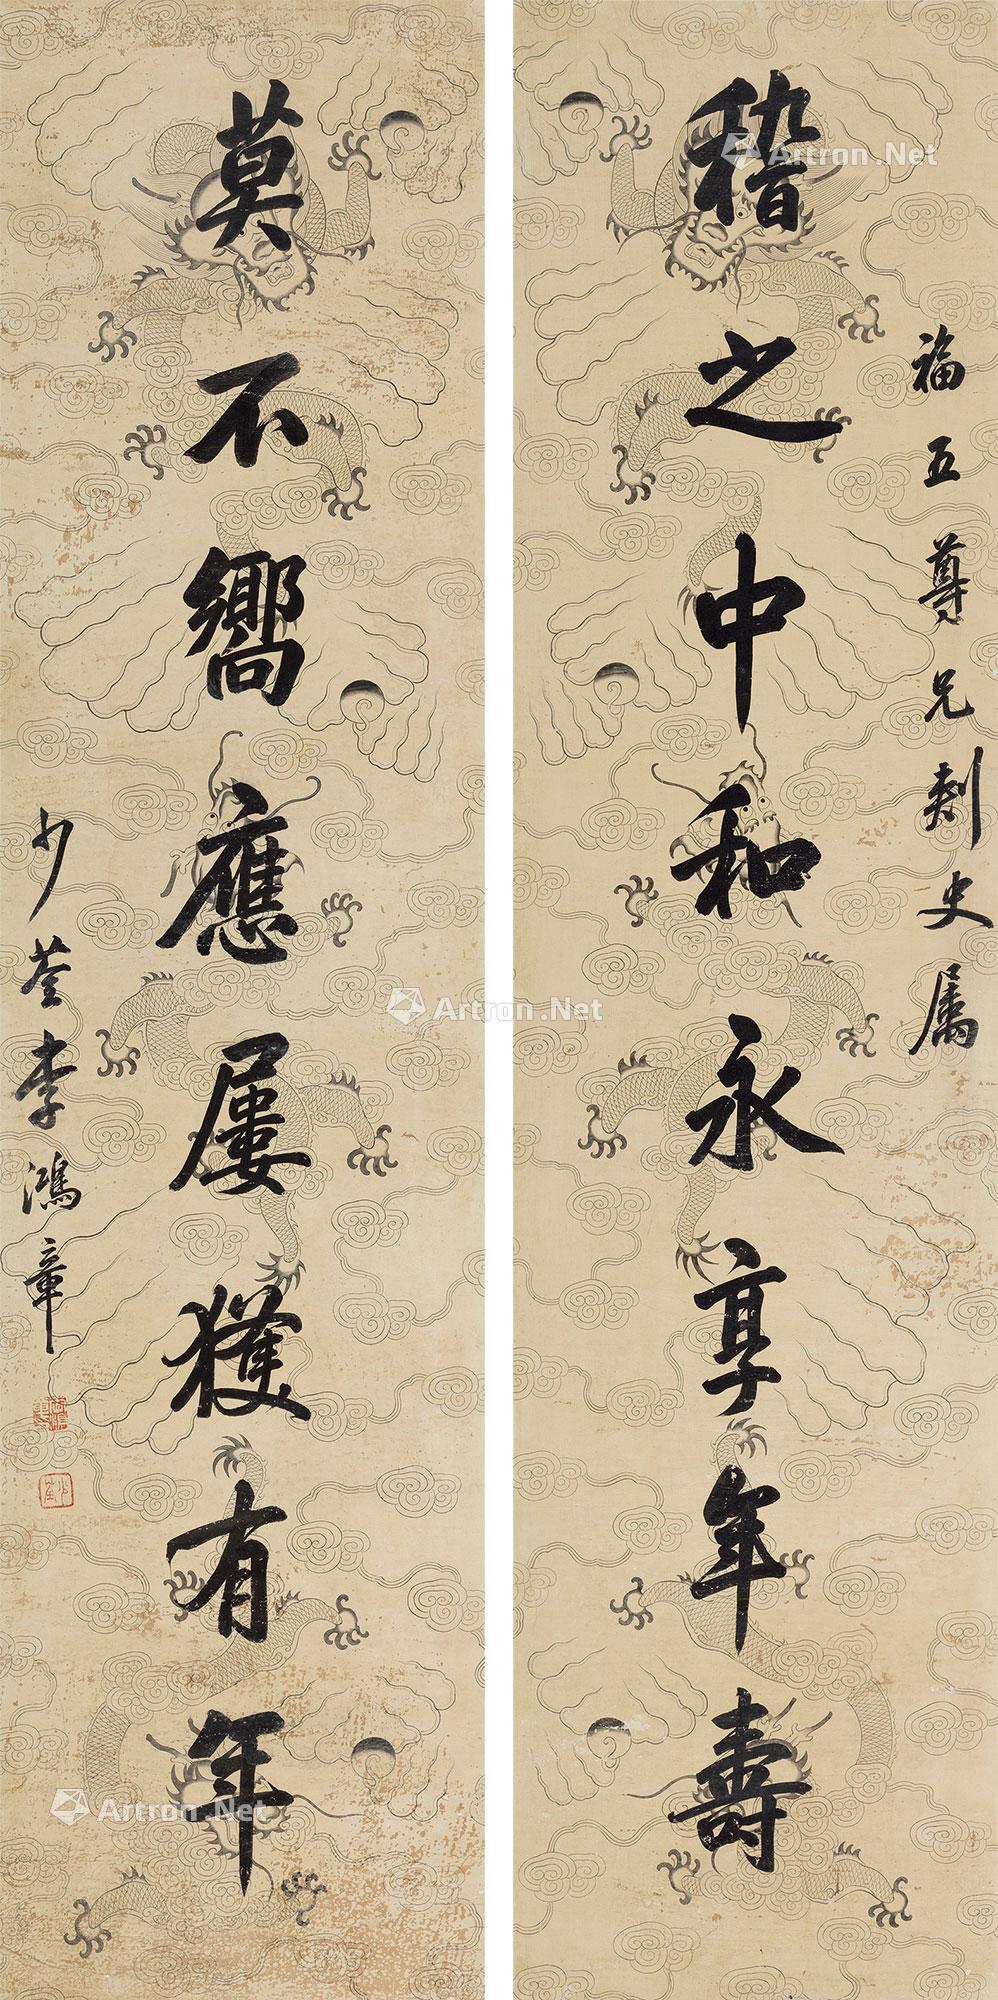 福五尊兄刺史属
稽之中和永享年壽
莫不嚮應屢獲有年
少荃李鴻章
少荃
Artron.Net
Artron.Net
Artron.Net